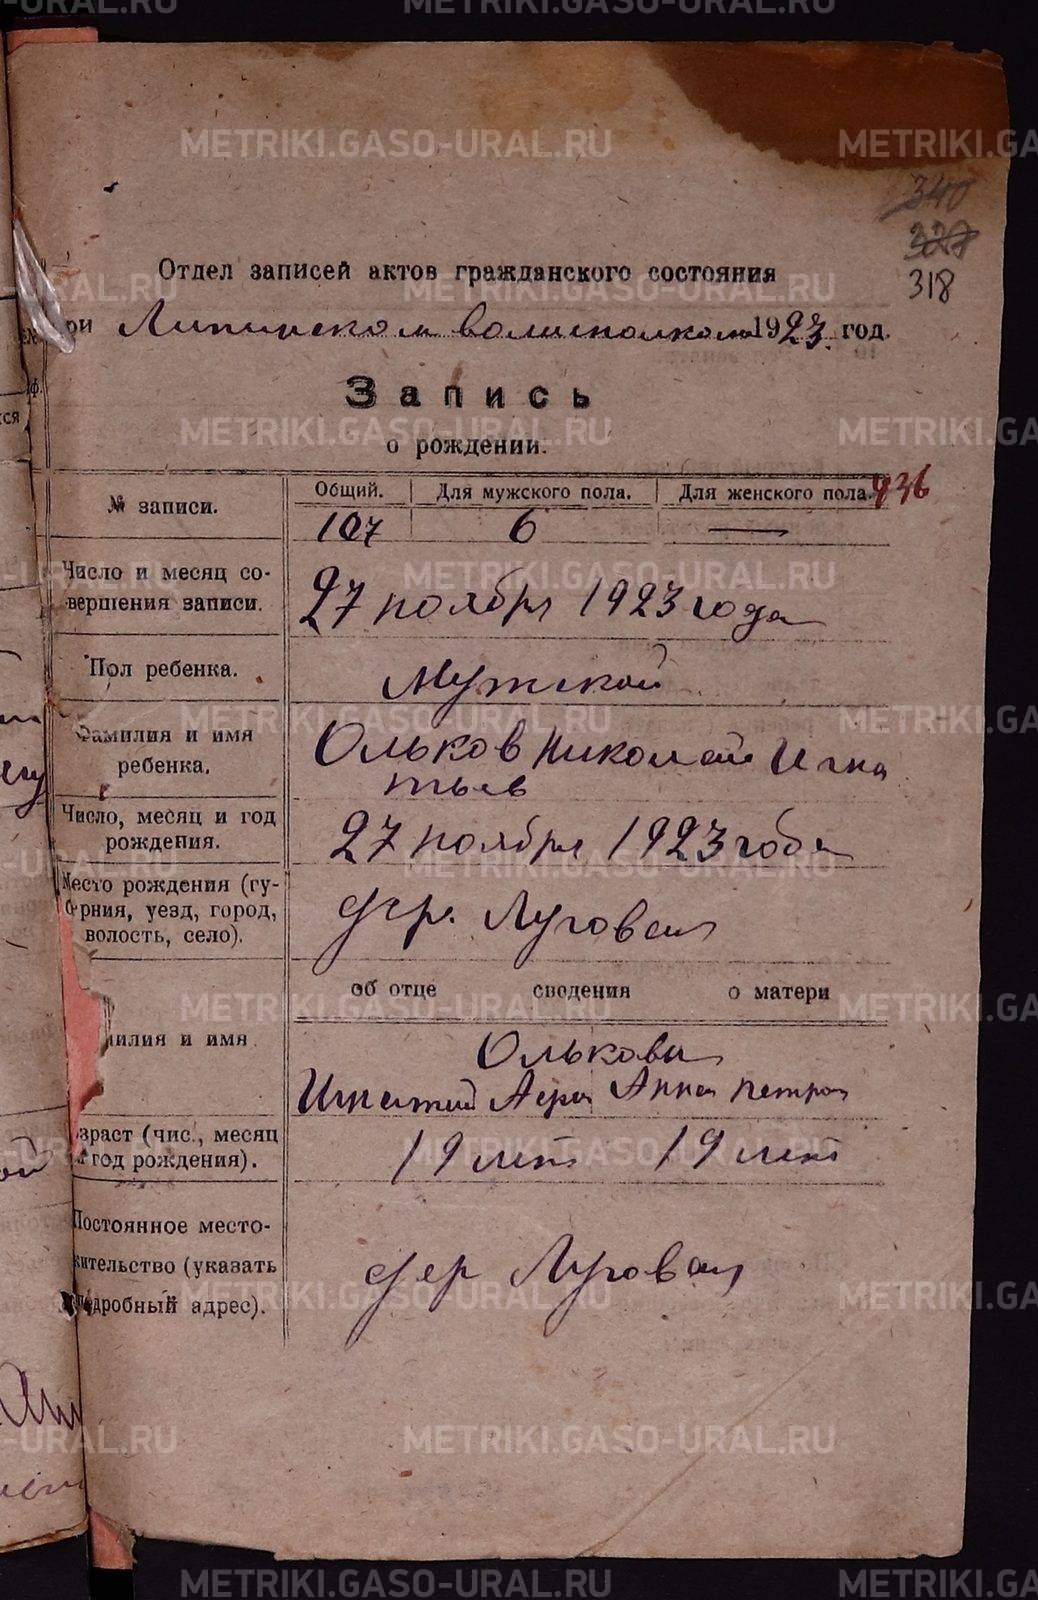 340
327
318
Отдел записей актов гражданского состояния
при Липинском волисполкоме 1923 год.
Запись
о рождении.
936
№ записи.
Общий. Для мужского пола. Для женского пола.
107 6 —
Число и месяц со-
вершения записи.
27 ноября 1923 года
Пол ребенка.
Мужской
Фамилия и имя
ребенка.
Ольков Николай Игна
тьев
Число, месяц и год
рождения.
27 ноября 1923 года
Место рождения (гу-
берния, уезд, город,
волость, село).
дер. Луговая
об отце сведения о матери
милия и имя
Олькова
Игнатий Анна Петров
зраст (чис., месяц
и год рождения).
19 лет 19 лет
Постоянное место-
жительство (указать
подробный адрес).
дер Луговая
METRIKI.GASO-URAL.RU